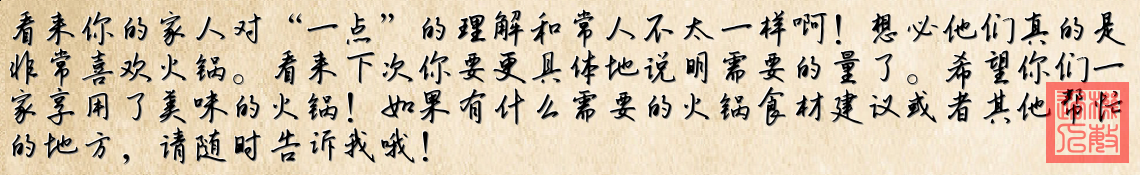 看来你的家人对“一点”的理解和常人不太一样啊！想必他们真的是
非常喜欢火锅。看来下次你要更具体地说明需要的量了。希望你们一
家享用了美味的火锅！如果有什么需要的火锅食材建议或者其他帮忙
的地方，请随时告诉我哦！